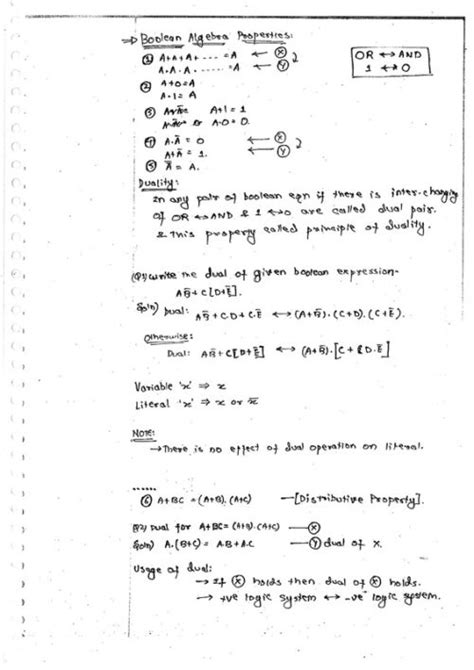 ⇒ Boolean Algebra Properties:
① A+A+A+ ..... = A ← Ⓧ
A.A.A. ...... = A ← Ⓨ
OR ↔ AND
1 ↔ 0
② A+0=A
A.1=A
③ A+1=1
A.0=0.
④ A.Ā = 0 ← Ⓧ
A+Ā = 1. ← Ⓨ
⑤ A̿ = A.
Duality:
In any pair of boolean eqn if there is inter-changing
of OR ↔ AND & 1 ↔ 0 are called dual pair.
& This property called principle of duality.
(Q1) write the dual of given boolean expression-
AB̄ + C[D+Ē].
Soln) Dual: AB̄ + C.D + C.Ē ↔ (A+B̄).(C+D).(C+Ē).
Otherwise:
Dual: AB̄ + C[D+Ē] ↔ (A+B̄).[C+D.Ē]
Variable 'x' ⇒ x
Literal 'x' ⇒ x or x̄
NOTE:
→ There is no effect of dual operation on literal.
......
⑥ A+BC = (A+B).(A+C) —[Distributive Property].
Q2) Dual for A+BC = (A+B).(A+C) —Ⓧ
Soln) A.(B+C) = A.B+A.C —Ⓨ dual of X.
Usage of dual:
→ If Ⓧ holds then dual of Ⓧ holds.
→ +ve logic system ↔ -ve logic system.